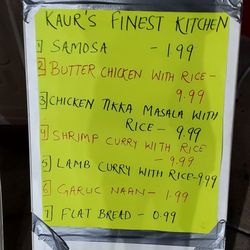 KAUR'S FINEST KITCHEN
1 SAMOSA - 1.99
2 BUTTER CHICKEN WITH RICE-
9.99
3 CHICKEN TIKKA MASALA WITH
RICE - 9.99
4 SHRIMP CURRY WITH RICE
- 9.99
5 LAMB CURRY WITH RICE-9.99
6 GARLIC NAAN - 1.99
7 FLAT BREAD - 0.99